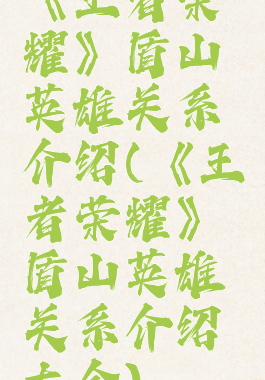 《王者荣
耀》盾山
英雄关系
介绍(《王
者荣耀》
盾山英雄
关系介绍
大全)